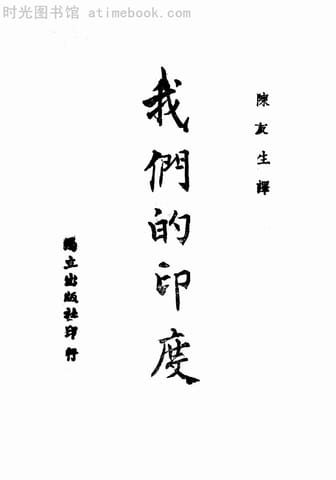 时光图书馆 - atimebook.com
陳友生譯
我們的印度
獨立出版社印行